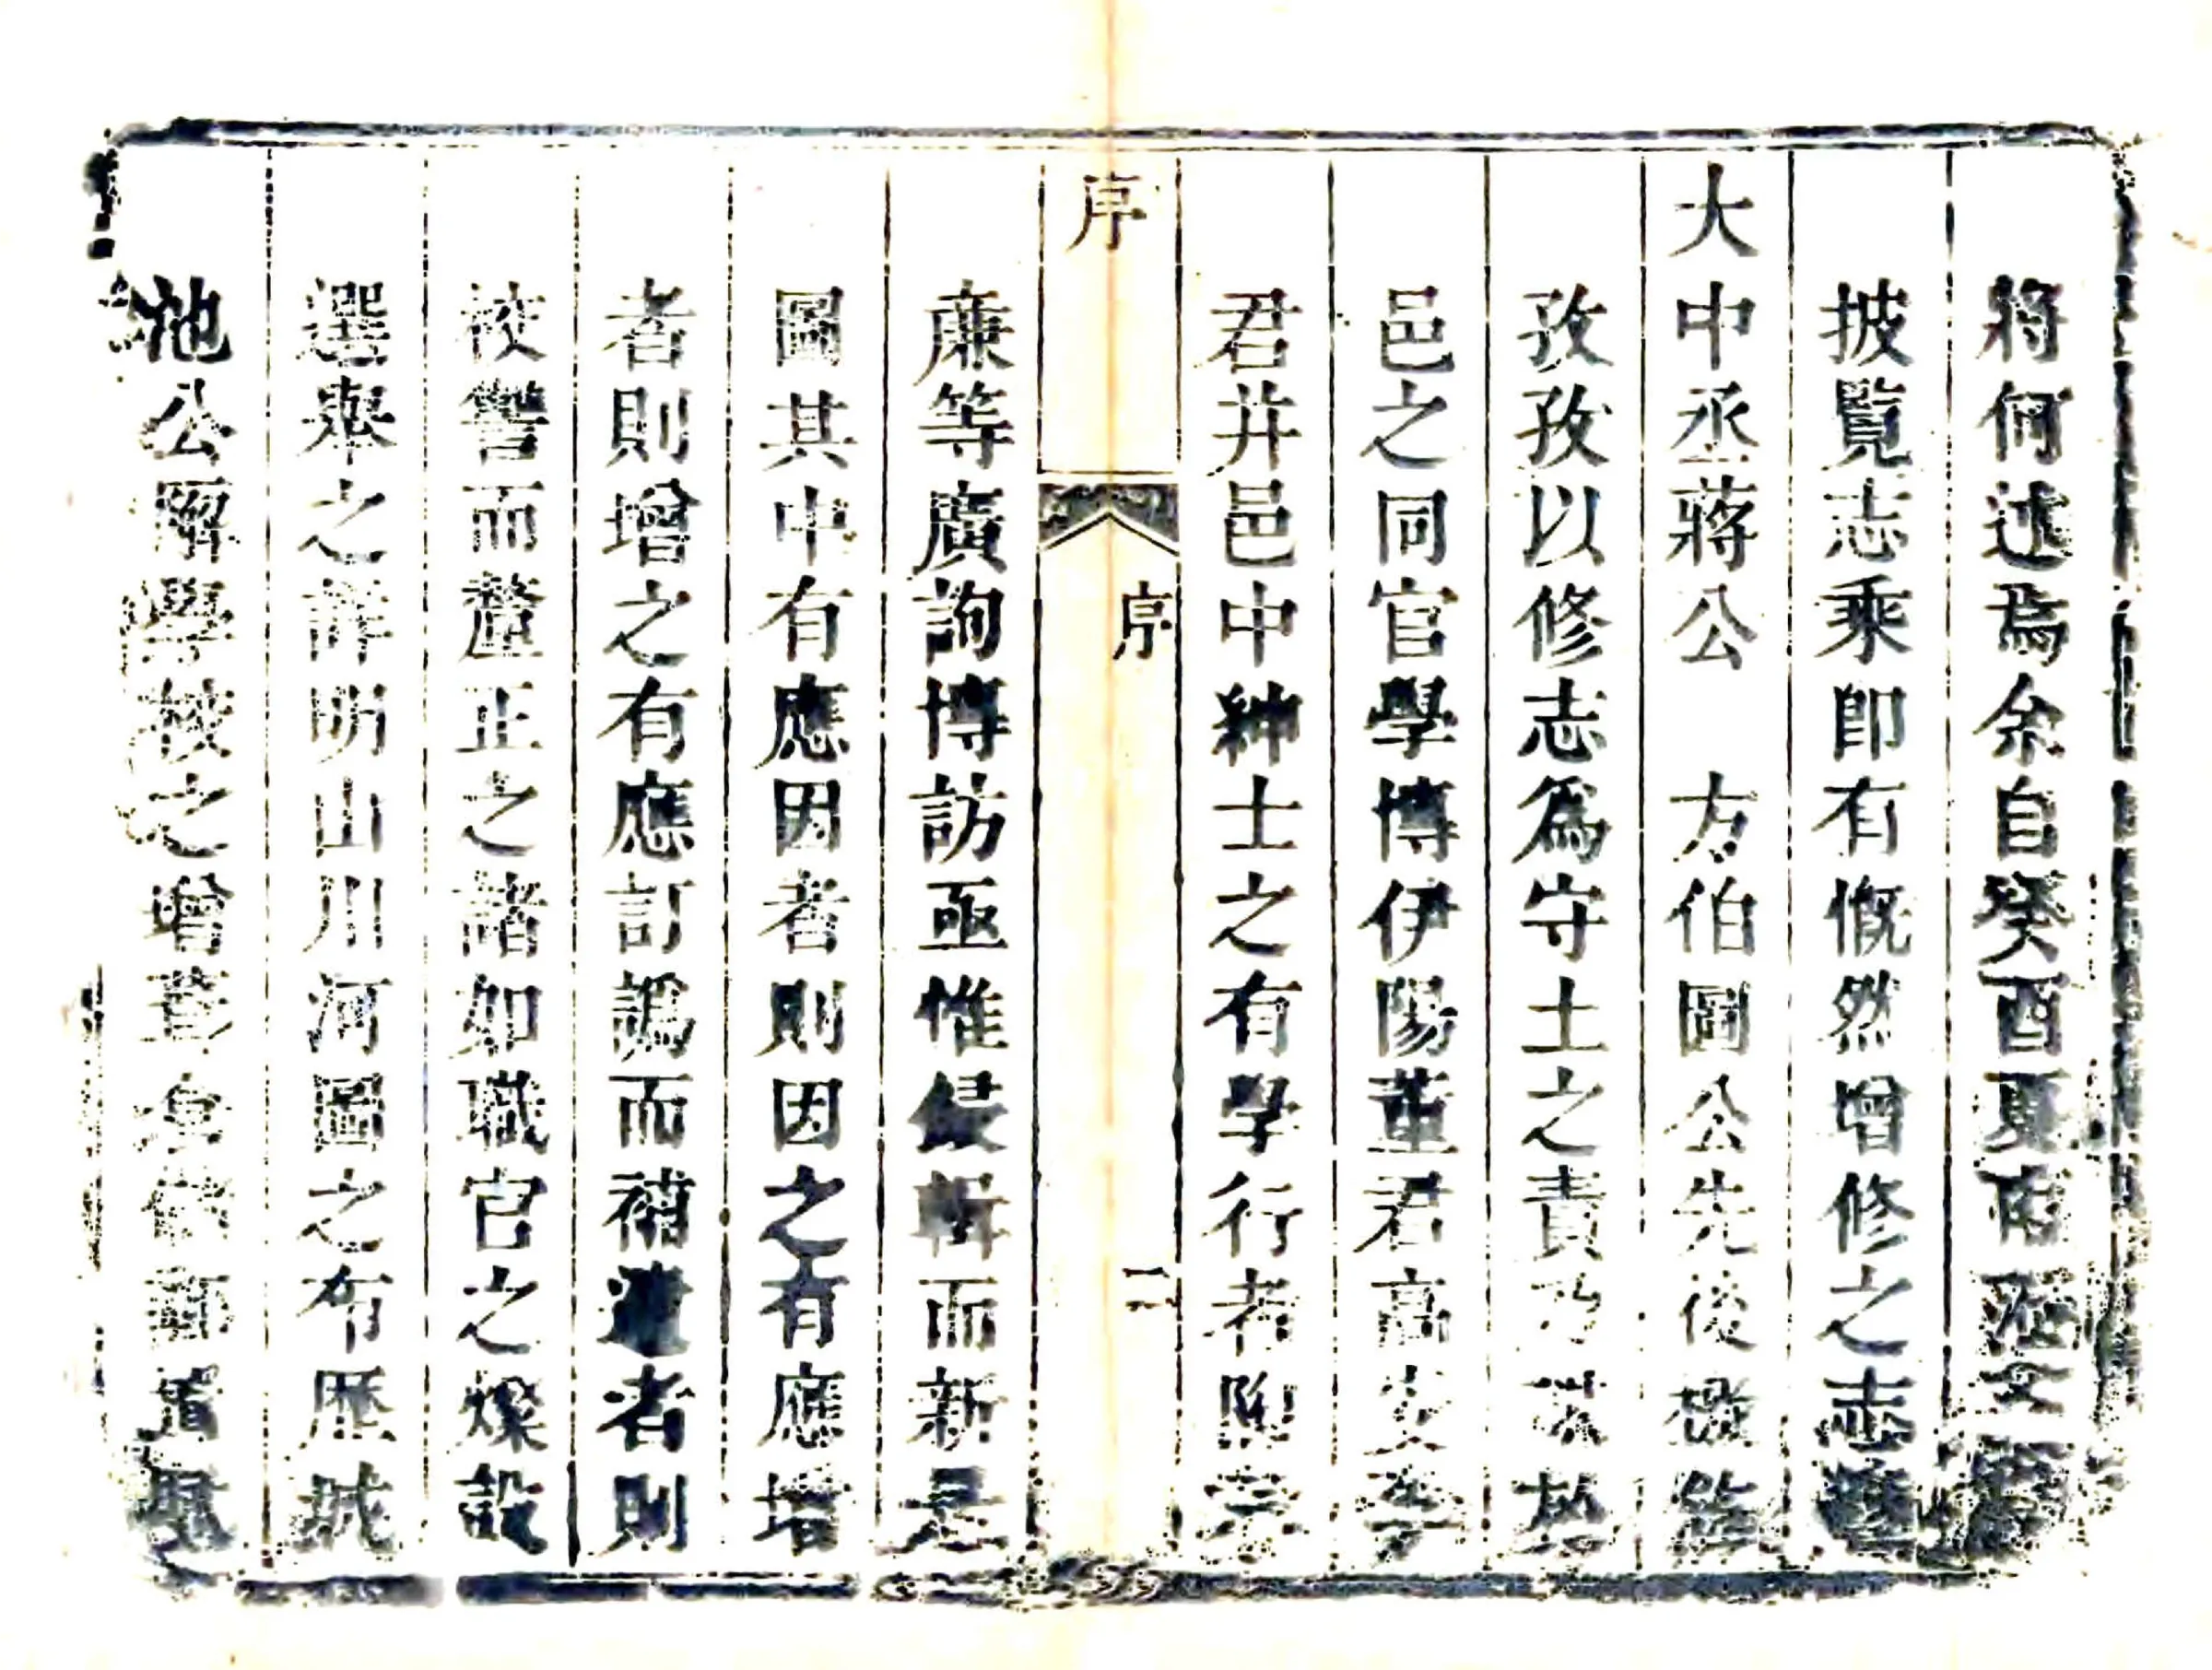 將何述焉余自癸酉夏南
披覽志乘即有慨然增修之志
大中丞蔣公　方伯圖公先後檄
孜孜以修志為守土之責乃
邑之同官學博伊陽董君高
君并邑中紳士之有學行者熙
序
序
二
廉等廣詢博訪亟惟侵輯而新
圖其中有應因者則因之有應增
者則增之有應訂譌而補遺者則
校讐而釐正之諸如職官之燦設
選舉之詳明山川河圖之布歷
池公廨學校之增